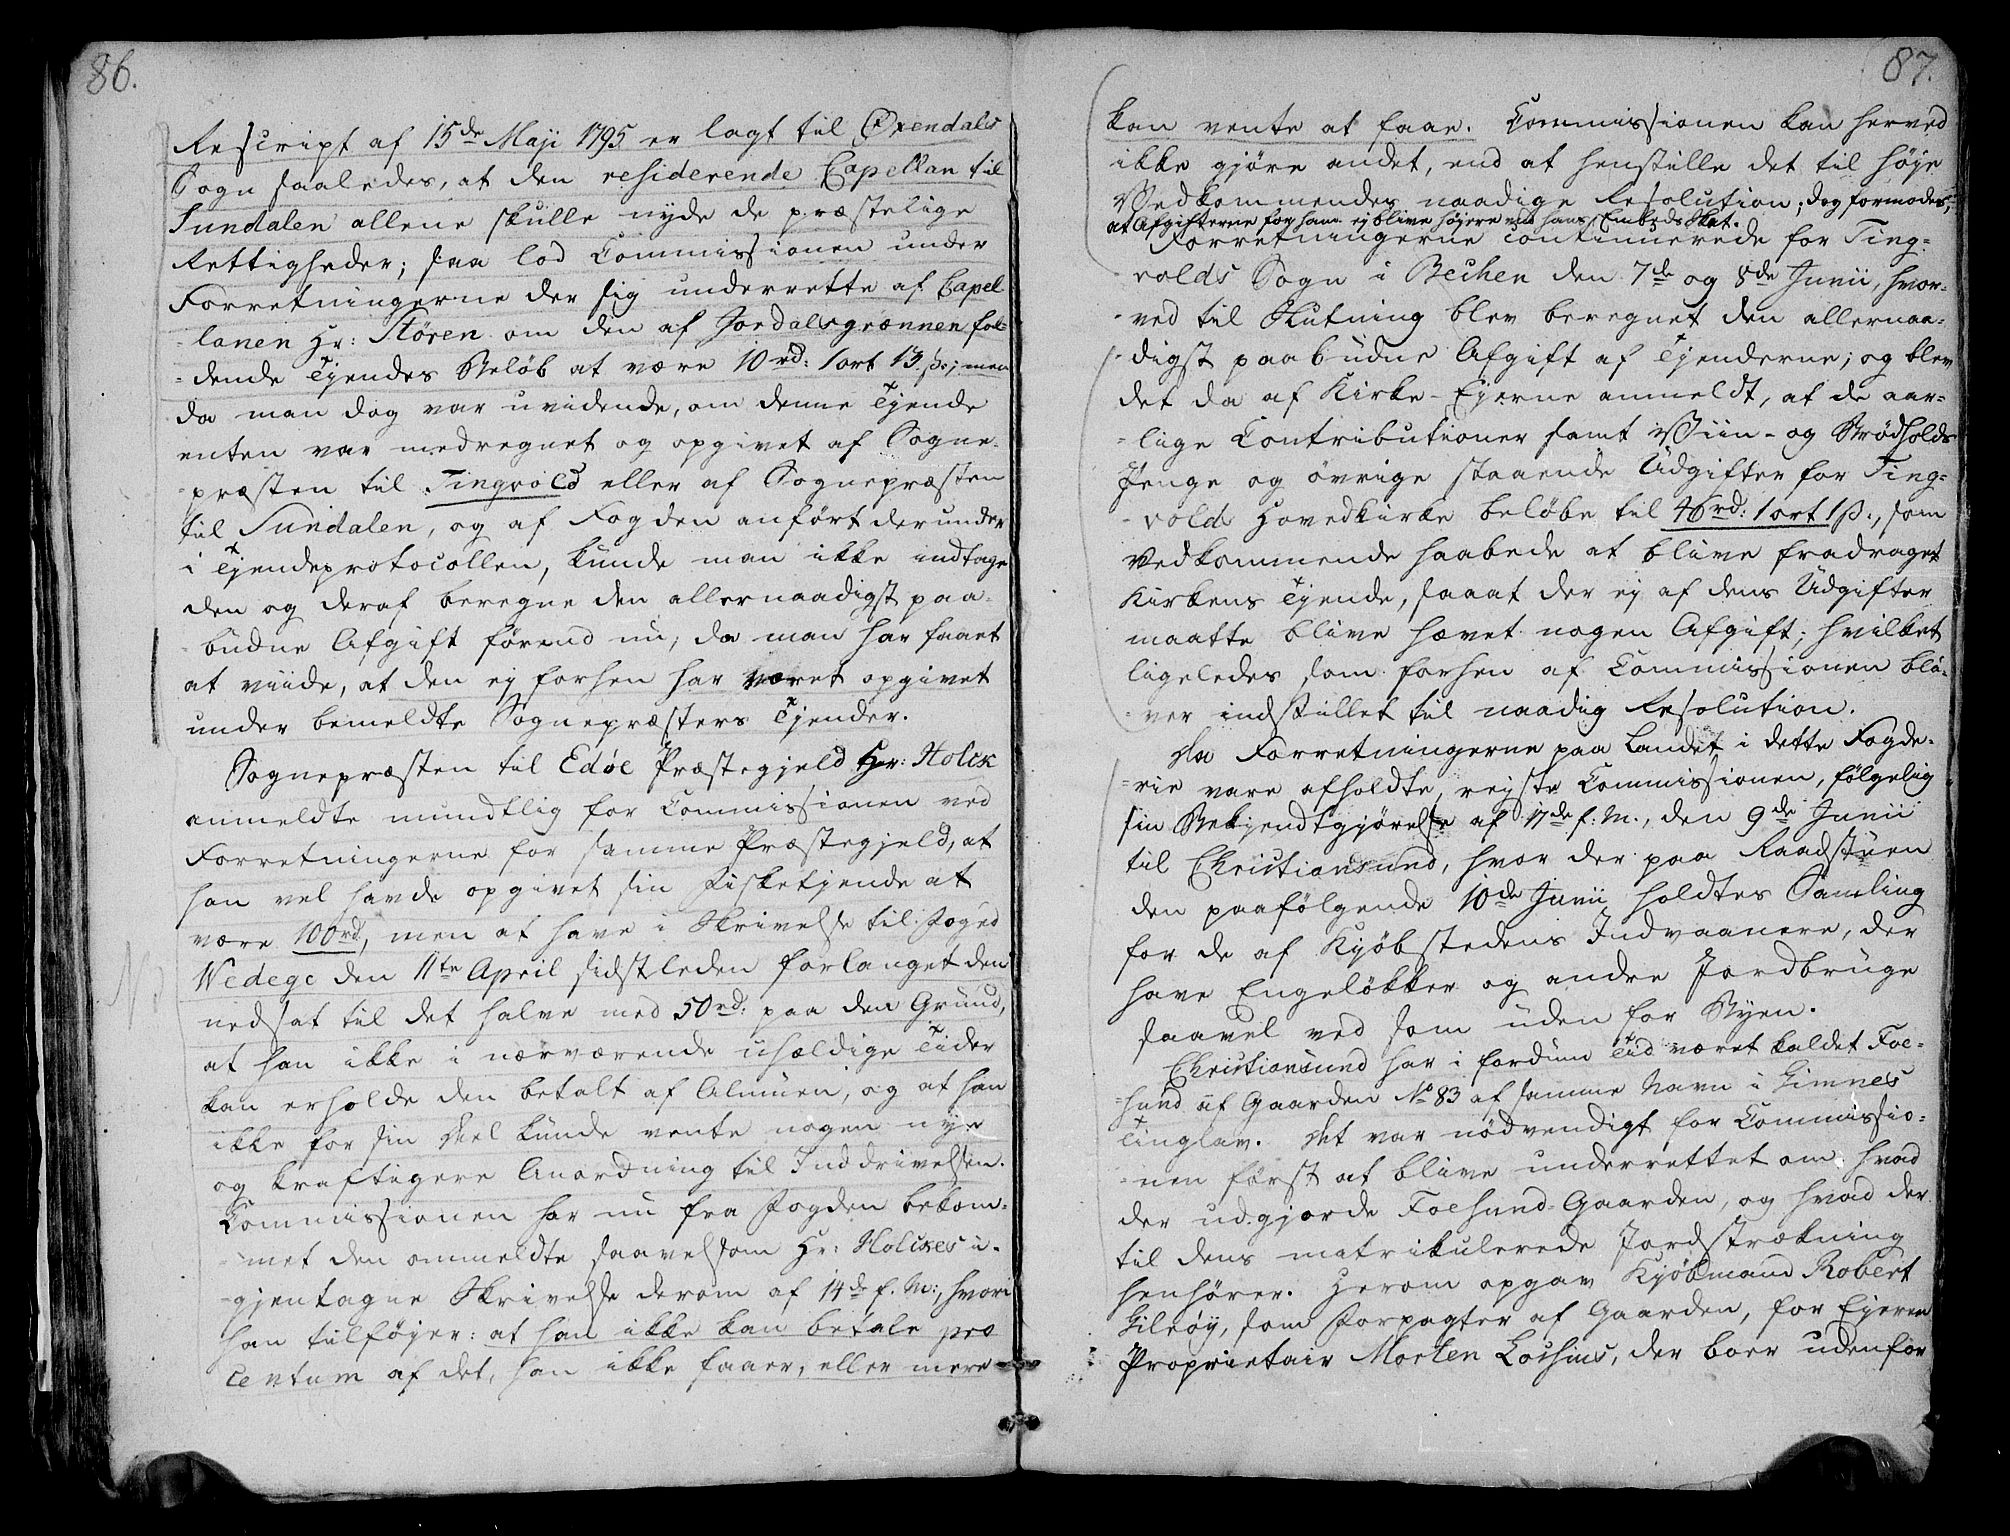 86.
Rescript af 15de Maji 1795 er lagt til Øxendals
Sogn saaledes, at den residerende Capellan til
Sundalen allene skulle nyde de præstelige
Rettigheder; saa lod Commissionen under
Forretningerne der sig underrette af Capel
lanen Hr: Stören om den af Jordalsgrænnen fal=
=dende Tjendes Beløb at være 10 rd: 1 ort 13 ß:; men
da man dog var uvidende, om denne Tjende
enten var medregnet og opgivet af Sogne-
præsten til Tingvold eller af Sognepræsten
til Sundalen, og af Fogden anført derunder
i Tjendeprotocollen, kunde man ikke indtage
den og deraf beregne den allernaadigst paa-
budne Afgift førend nu, da man har faaet
at viide, at den ej forhen har været opgivet
under bemeldte Sognepræsters Tjender.
Sognepræsten til Edöe Præstegjeld Hr: Holck
anmeldte mundtlig for Commissionen ved
Forretningerne for samme Præstegjeld, at
han vel havde opgivet sin Fisketjende at
være 100 rd, men at have i Skrivelse til Foged
Wedege den 11te April sidstleden forlanget den
nedsat til det halve med 50 rd: paa den Grund,
at han ikke i nærværende uhældige Tider
kan erholde den betalt af Almuen, og at han
ikke for sin Deel kunde vente nogen nye
og kraftigere Anordning til Inddrivelsen.
Commissionen har nu fra Fogden bekom-
met den anmeldte saavelsom Hr: Holckes i-
gjentagne Skrivelse derom af 14de f. M:, hvori
han tilføjer: at han ikke kan betale pro
centum af det, han ikke faaer, eller mere
87.
kan vente at faae. Commissionen kan herved
ikke gjöre andet, end at henstille det til höje
Vedkommendes naadige Resolution; dog formodes,
at Afgifterne for ham ej blive højere end hans Embeds Skat.
Forretningerne continuerede for Ting=
volds Sogn i Bechen den 7de og 8de Junii, hvor-
ved til Slutning blev beregnet den allernaa-
digst paabudne Afgift af Tjenderne; og blev
det da af Kirke-Ejerne anmeldt, at de aar=
=lige Contributioner samt Viin- og Brödholds
Penge og övrige staaende Udgifter for Ting=
volds Hovedkirke beløbe til 46 rd: 1 ort 1 ß:, som
Vedkommende haabede at blive fradraget
Kirkens Tjende, saaat der ej af dens Udgifter
maatte blive hævet nogen Afgift; hvilket
ligeledes som forhen af Commissionen bli-
ver indstillet til naadig Resolution.
Da Forretningerne paa Landet i dette Fogde-
=rie vare afholdte, rejste Commissionen, følgelig
sin Bekjendtgjørelse af 17de f. M., den 9de Junii
til Christiansund, hvor der paa Raadstuen
den paafölgende 10de Junii holdtes Samling
for de af Kjöbstedens Indvaanere, der
have Engelökker og andre Jordbruge
saavel ved som uden for Byen.
Christiansund har i fordum Tid været kaldet Foe-
=sund af Gaarden No 83 af samme Navn i Gimnes
Tinglav. Det var nödvendigt for Commissio=
nen först at blive underrettet om, hvad
der udgjorde Foesund-Gaarden, og hvad der
til dens matrikulerede Jordstrækning
henhörer. Herom opgav Kjöbmand Robert
Gilröy, som Forpagter af Gaarden, for Ejeren
Proprietair Morten Lossius, der boer udenfor